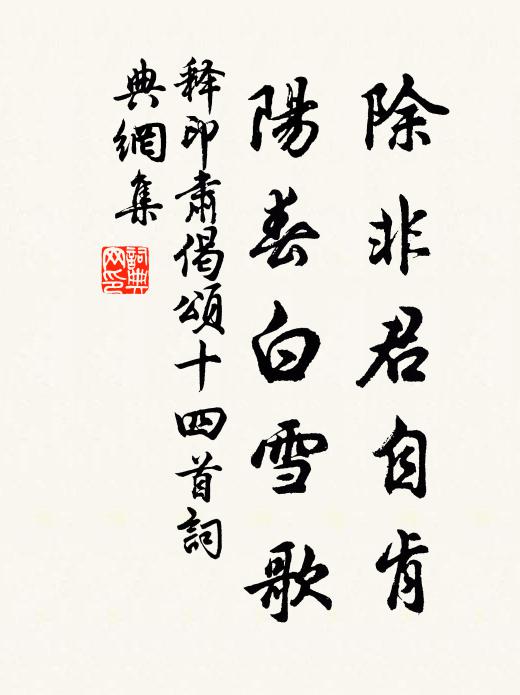 除非君自肯
陽春白雪歌
釋印肅偈頌十四首詞
典網集
詞典
网印